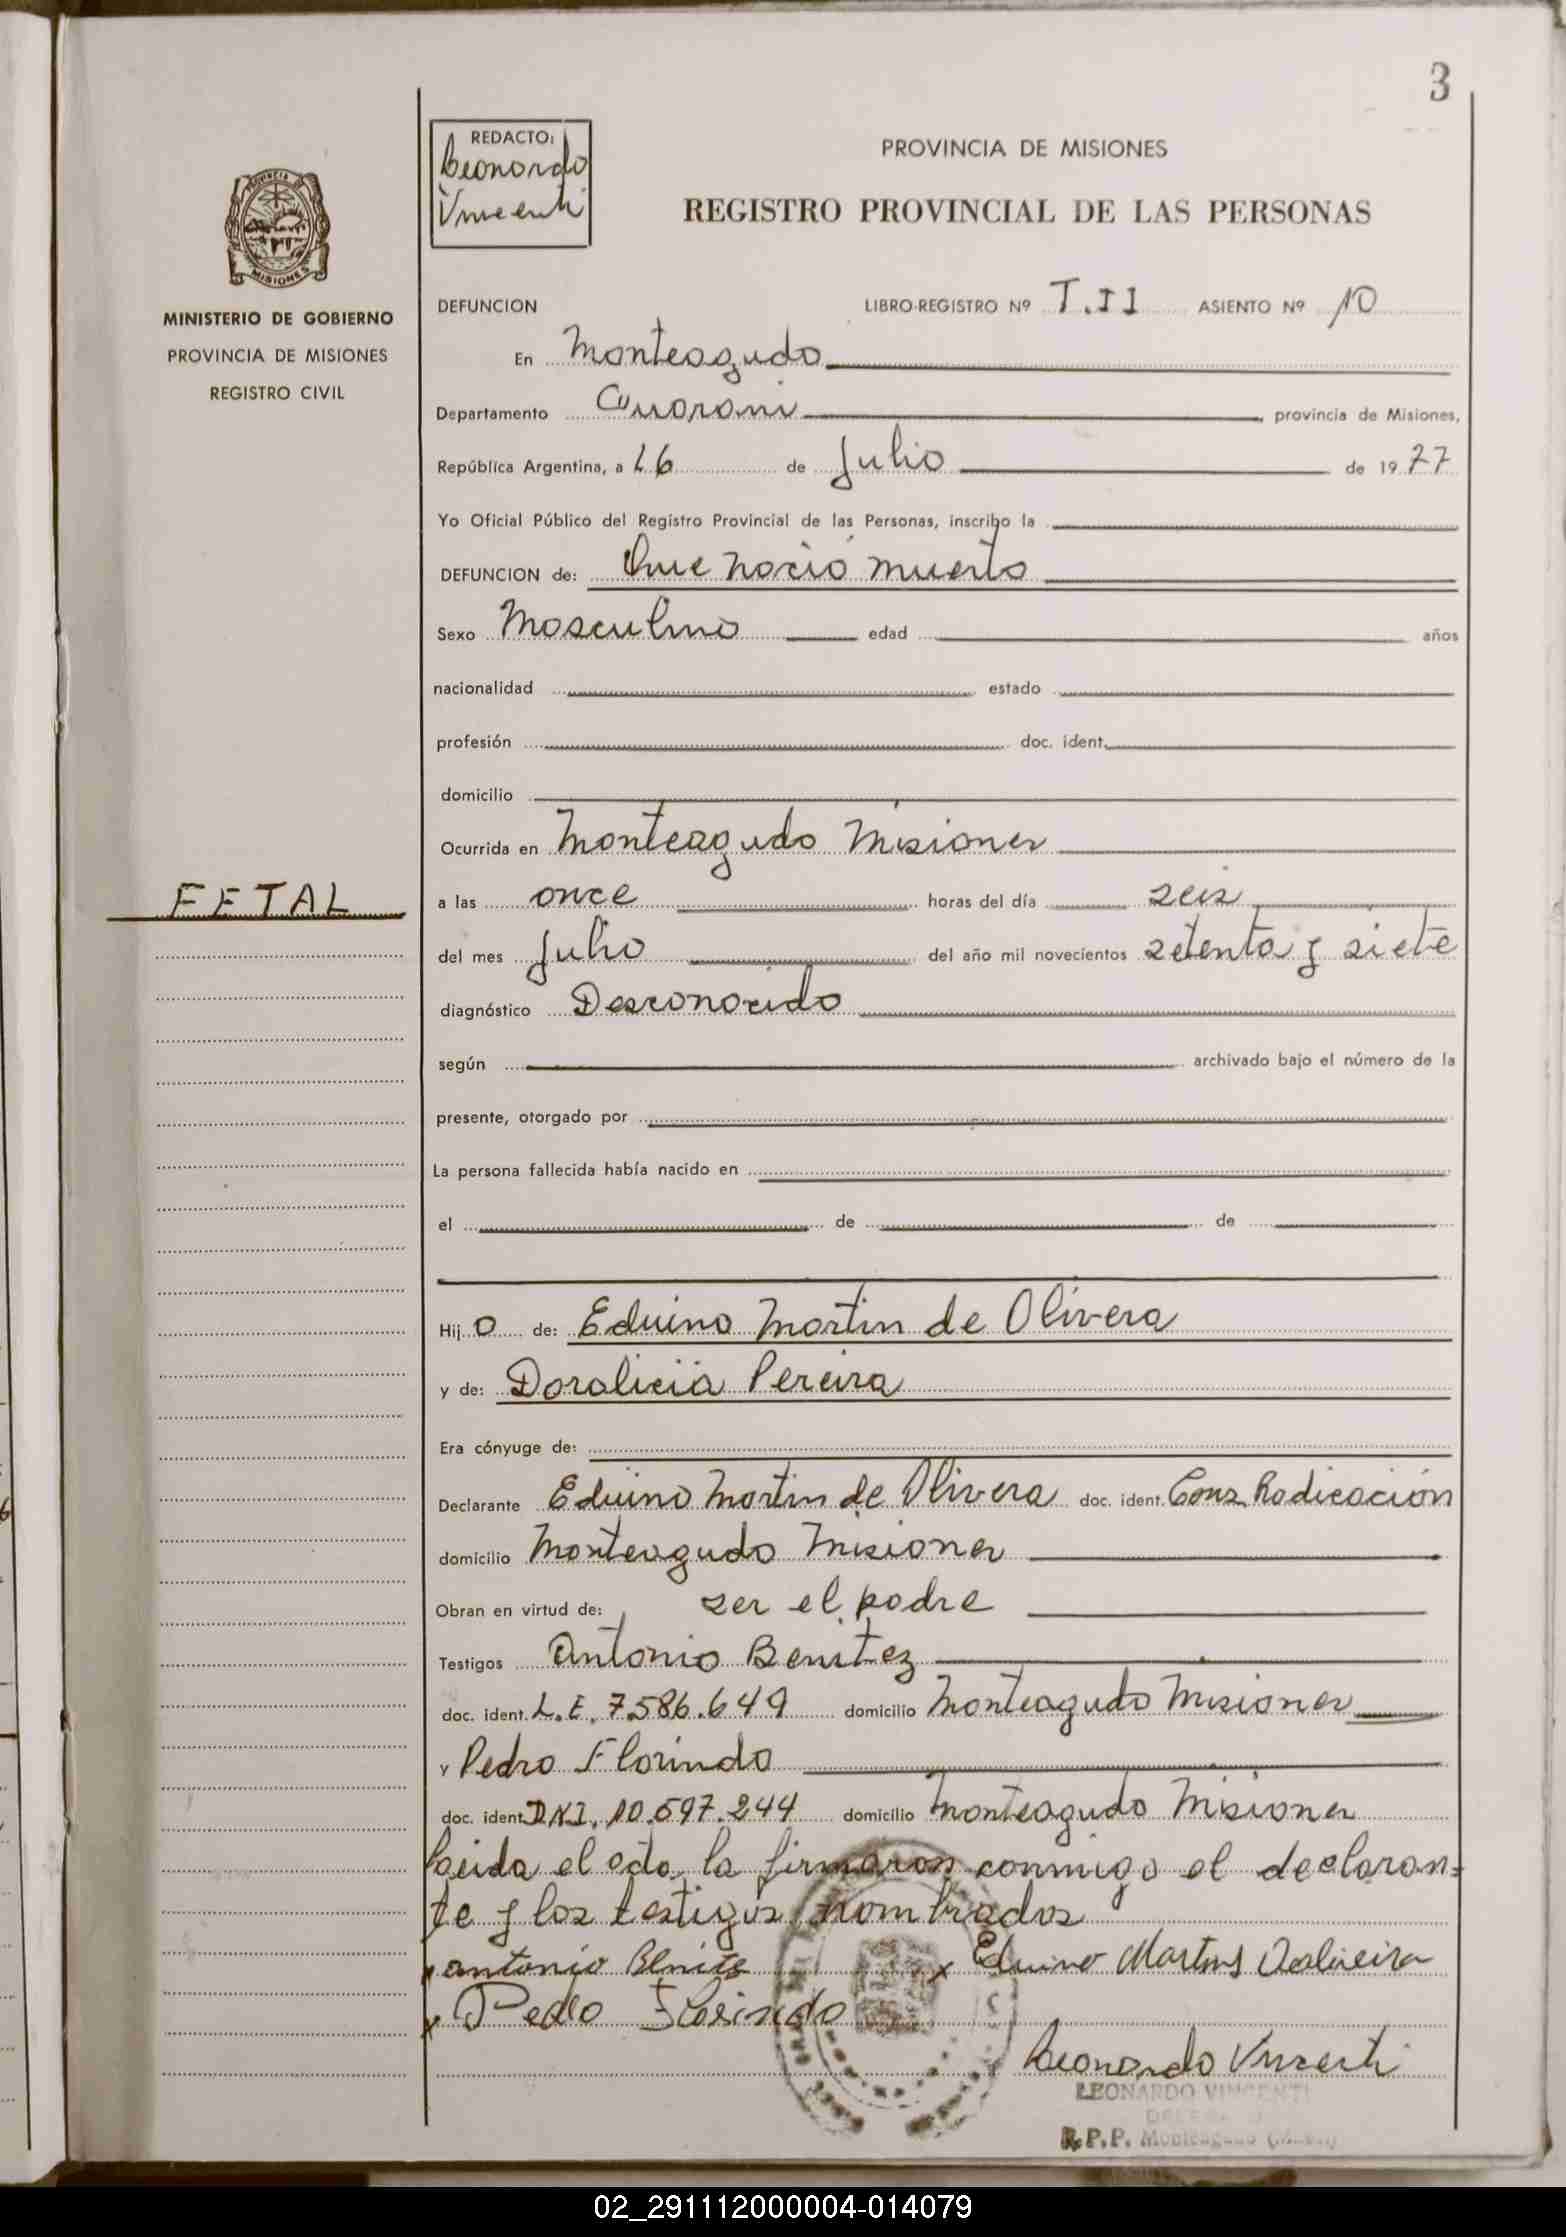 3
REDACTO:
Leonardo
Vincenti
PROVINCIA DE MISIONES
REGISTRO PROVINCIAL DE LAS PERSONAS
PROVINCIA DE
MISIONES
MINISTERIO DE GOBIERNO
PROVINCIA DE MISIONES
REGISTRO CIVIL
DEFUNCION LIBRO-REGISTRO Nº T.II ASIENTO Nº 10
En Monteagudo
Departamento Guarani provincia de Misiones,
República Argentina, a 16 de Julio de 1977
Yo Oficial Público del Registro Provincial de las Personas, inscribo la
DEFUNCION de: Que nació muerto
Sexo Masculino edad años
nacionalidad estado
profesión doc. ident.
domicilio
Ocurrida en Monteagudo Misiones
FETAL
a las once horas del día seis
del mes Julio del año mil novecientos setenta y siete
diagnóstico Desconocido
según archivado bajo el número de la
presente, otorgado por
La persona fallecida había nacido en
el de de
Hijo de: Eduino Martin de Olivera
y de: Doralicia Pereira
Era cónyuge de:
Declarante Eduino Martin de Olivera doc. ident. Cons Radicación
domicilio Monteagudo Misiones
Obran en virtud de: ser el padre
Testigos Antonio Benitez
doc. ident. L.E. 7.586.649 domicilio Monteagudo Misiones
y Pedro Florindo
doc. ident. DNI. 10.597.244 domicilio Monteagudo Misiones
Leida el acta la firmaron conmigo el declaran=
te y los testigos nombrados
x antonio Benites x Eduino Martins Deoliveira
x Pedro Florindo
Leonardo Vincenti
LEONARDO VINCENTI
R.P.P. Monteagudo
02_291112000004-014079